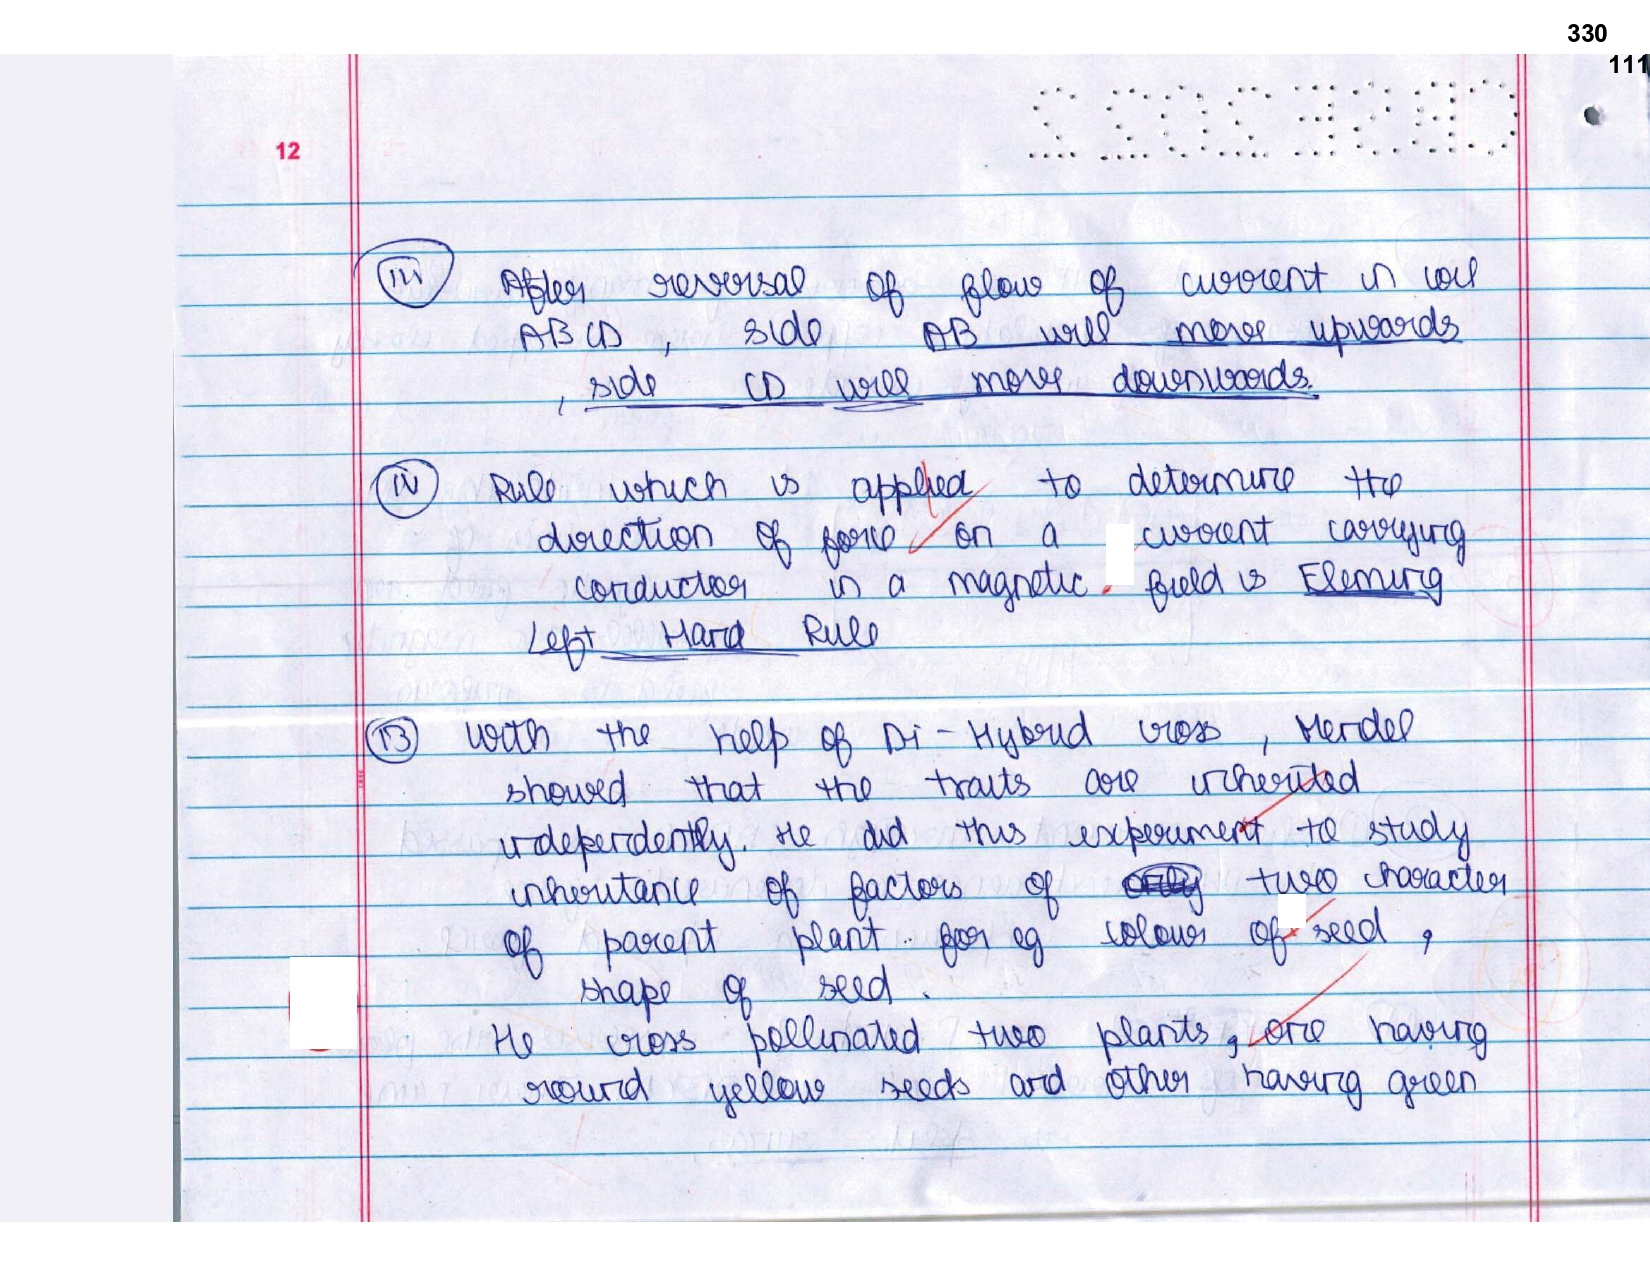 330
111
CBSE2022
12
(iii) After reversal of flow of current in coil
ABCD, side AB will move upwards
, side CD will move downwards.
(iv) Rule which is applied to determine the
direction of force on a current carrying
conductor in a magnetic field is Fleming
Left Hand Rule
13 With the help of Di-Hybrid cross, Mendel
showed that the traits are inherited
independently. He did this experiment to study
inheritance of factors of two character
of parent plant for eg colour of seed,
shape of seed.
He cross pollinated two plants, one having
round yellow seeds and other having green